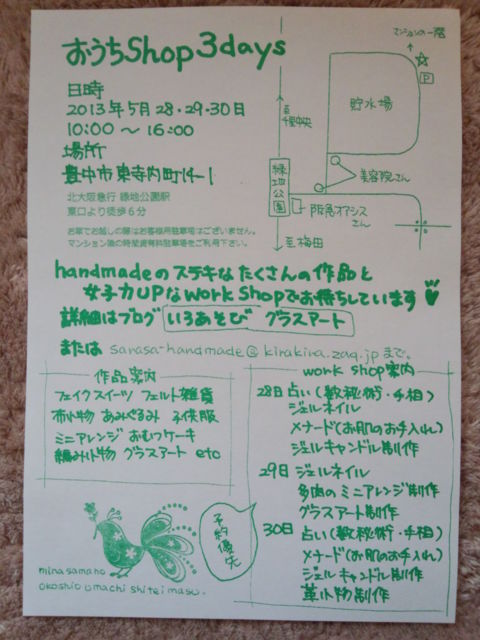 おうちShop 3days
日時
2013年5月28・29・30日
10:00〜16:00
場所
豊中市東寺内町14-1
北大阪急行 緑地公園駅
東口より徒歩6分
お車でお越しの際はお客様用駐車場はございません。
マンション横の時間貸有料駐車場をご利用下さい。
マンションの一階
P
貯水場
至千里中央
緑地公園
美容院さん
阪急オアシスさん
至梅田
handmadeのステキなたくさんの作品と
女子力UPなwork shopでお待ちしています
詳細はブログ いろあそび グラスアート
または sarasa-handmade@kirakira.zaq.jp まで。
作品案内
フェイクスイーツ フェルト雑貨
布小物 あみぐるみ 子供服
ミニアレンジ おむつケーキ
編み小物 グラスアート etc
work shop案内
28日 占い(数秘術・手相)
ジェルネイル
メナード(お肌のお手入れ)
ジェルキャンドル制作
29日 ジェルネイル
多肉のミニアレンジ制作
グラスアート制作
30日 占い(数秘術・手相)
メナード(お肌のお手入れ)
ジェルキャンドル制作
革小物制作
予約優先
minasamano
okoshio omachi shitei masu.